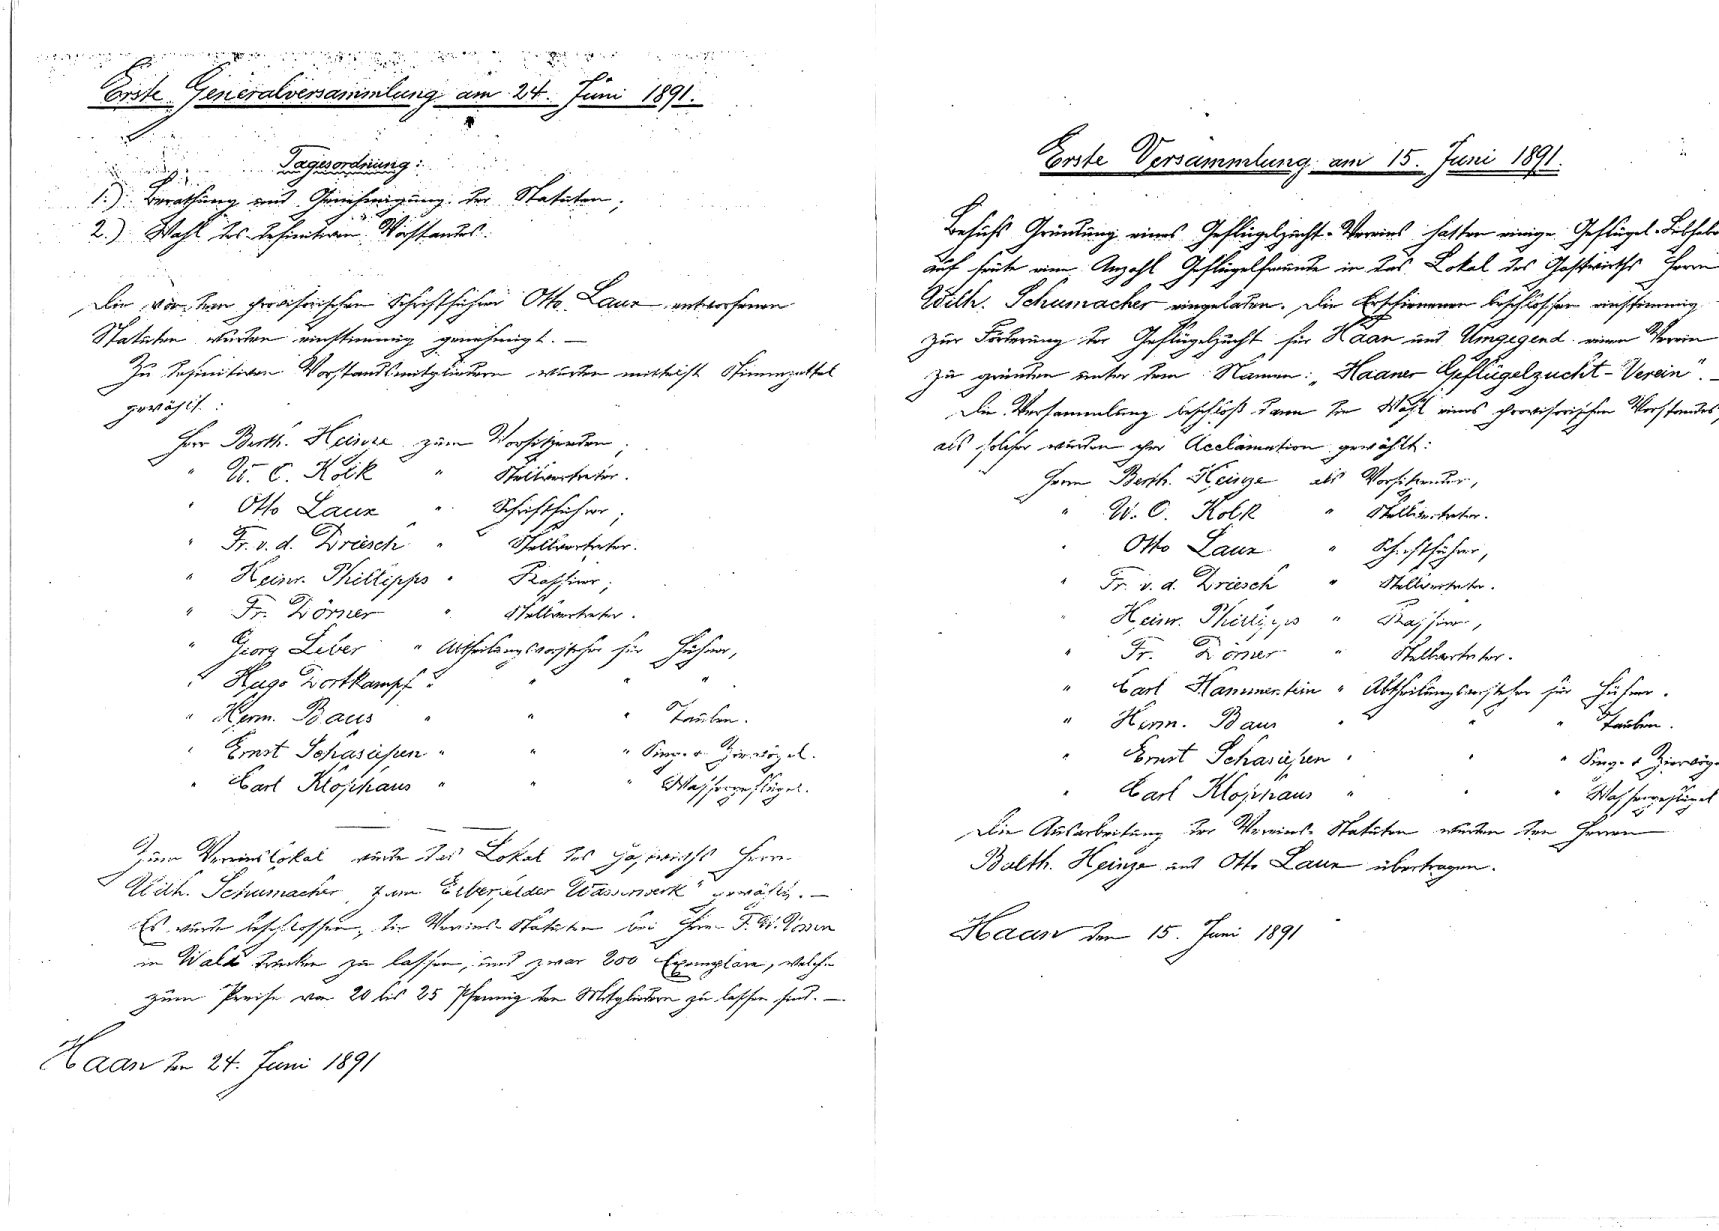 Erste Generalversammlung am 24. Juni 1891.
Tagesordnung:
1.) Berathung und Genehmigung der Statuten;
2.) Wahl des definitiven Vorstandes.
Die von dem provisorischen Schriftführer Otto Laux entworfenen
Statuten wurden einstimmig genehmigt. —
Zu definitiven Vorstandsmitgliedern wurden mittelst Stimmzettel
gewählt:
Herr Barth. Heinze zum Vorsitzenden;
" W. C. Kolk " Stellvertreter.
" Otto Laux " Schriftführer;
" Fr. v. d. Driesch " Stellvertreter.
" Heinr. Phillipps " Kassirer;
" Fr. Dörner " Stellvertreter.
" Georg Leber " Abtheilungsvorsteher für Hühner,
" Hugo Dortkampf " " " "
" Herm. Baus " " " Tauben.
" Ernst Schasiepen " " " Sing- u Ziervögel.
" Carl Klophaus " " " Wassergeflügel.
Zum Vereinslokal wurde das Lokal des Gastwirths Herrn
Wilh. Schumacher „Zum Elberfelder Wasserwerk" gewählt. —
Es wurde beschlossen, die Vereins-Statuten bei Herrn F. W. Vossen
in Wald drucken zu lassen, und zwar 200 Exemplare, welche
zum Preise von 20 bis 25 Pfennig den Mitgliedern zu lassen sind. —
Haan den 24. Juni 1891
Erste Versammlung am 15. Juni 1891.
Behufs Gründung eines Geflügelzucht-Vereins hatten einige Geflügel-Liebhaber
auf heute eine Anzahl Geflügelfreunde in das Lokal des Gastwirths Herrn
Wilh. Schumacher eingeladen. Die Erschienenen beschlossen einstimmig
zur Förderung der Geflügelzucht für Haan und Umgegend einen Verein
zu gründen unter dem Namen: „Haaner Geflügelzucht-Verein". —
Die Versammlung beschloß dann die Wahl eines provisorischen Vorstandes,
als solcher wurden per Acclamation gewählt:
Herrn Barth. Heinze als Vorsitzender,
" W. C. Kolk " Stellvertreter.
" Otto Laux " Schriftführer,
" Fr. v. d. Driesch " Stellvertreter.
" Heinr. Phillipps " Kassirer,
" Fr. Dörner " Stellvertreter.
" Carl Hammerstein " Abtheilungsvorsteher für Hühner.
" Herm. Baus " " " Tauben.
" Ernst Schasiepen " " " Sing- & Ziervög
" Carl Klophaus " " " Wassergeflügel
Die Ausarbeitung der Vereins-Statuten wurden den Herren
Balth. Heinze und Otto Laux übertragen.
Haan den 15. Juni 1891